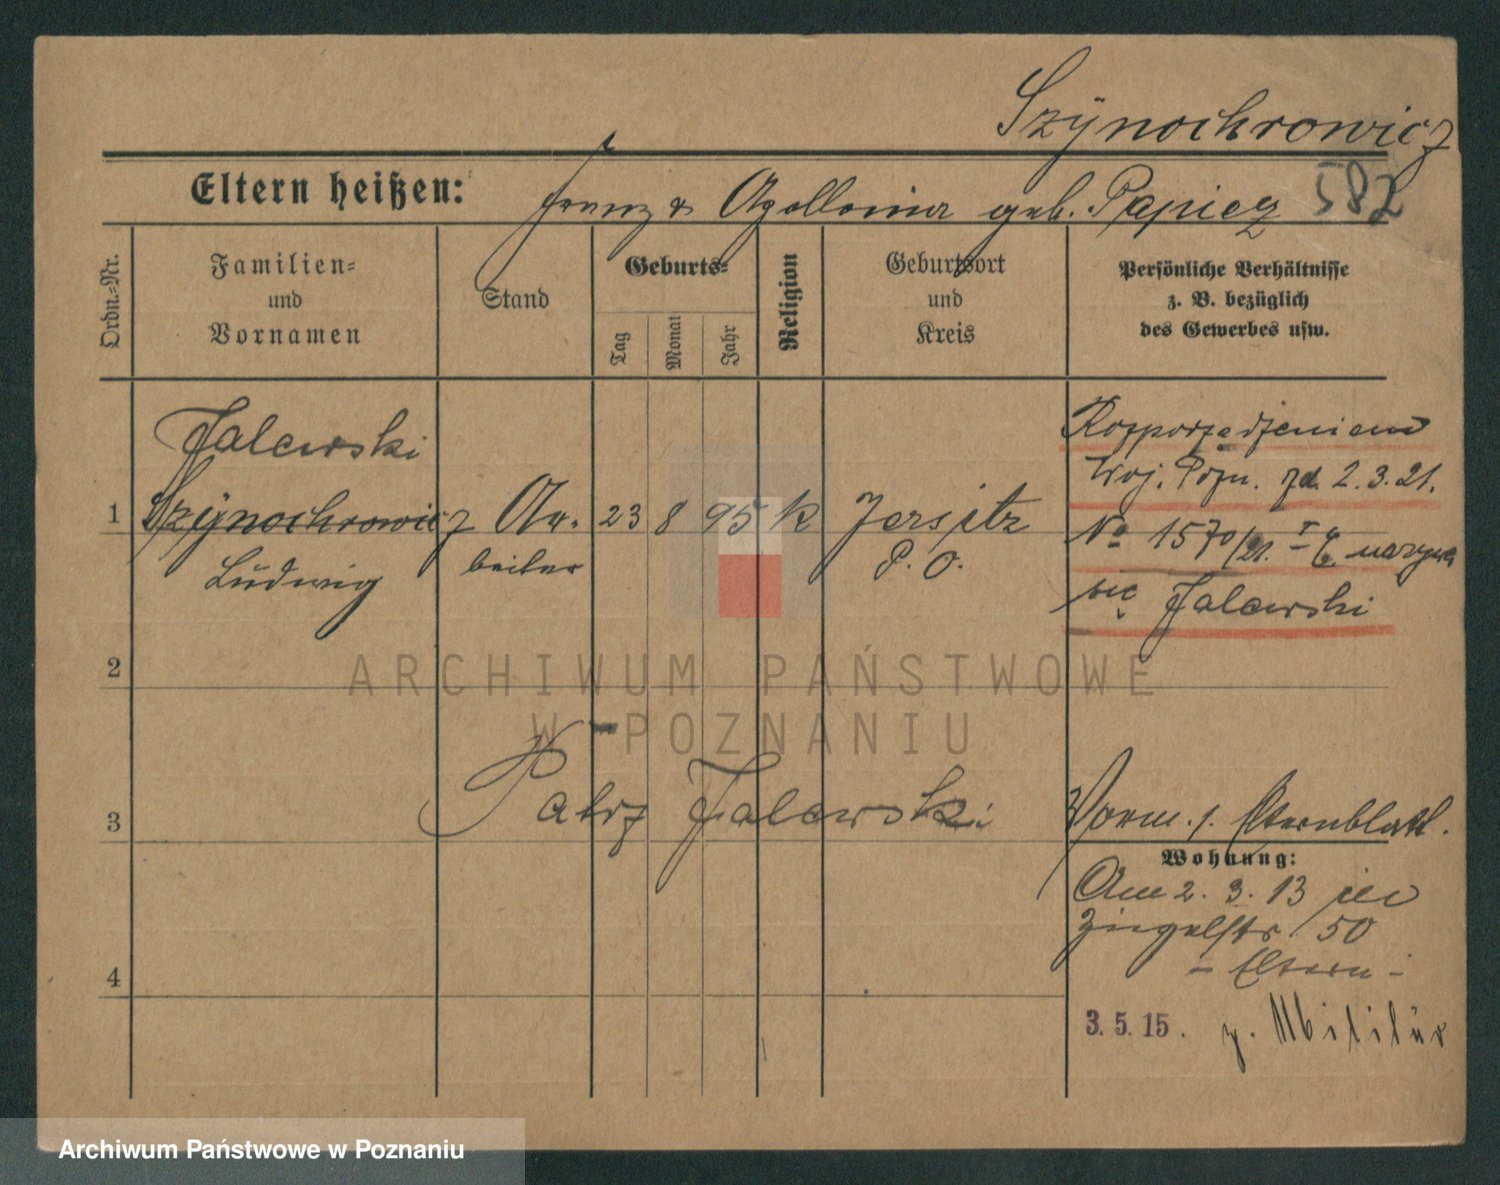 Szÿnochrowicz
Eltern heißen: Franz u. Apollonia geb. Papież 587
Ordn.-Nr.
Familien-
und
Vornamen
Stand
Geburts-
Tag
Monat
Jahr
Religion
Geburtsort
und
Kreis
Persönliche Verhältnisse
z. B. bezüglich
des Gewerbes usw.
Falewski
1 Szÿnochrowicz Ar- 23 8 95 k Jersitz
Ludwig beiter P. O.
Rozporządzeniem
Woj. Pozn. zd. 2.3.21.
No 1570/21. I nazywa
się Falewski
2
3 Patrz Falewski
Vorm. s. Elternblatt.
Wohnung:
Am 2. 3. 13 in
Ziegelstr. 50
- Eltern -
4
3. 5. 15. z. Militär
ARCHIWUM PAŃSTWOWE
W POZNANIU
Archiwum Państwowe w Poznaniu